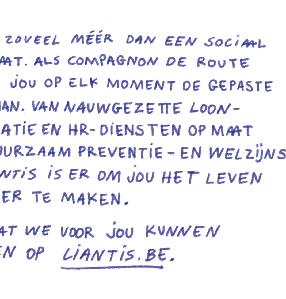 ZOVEEL MÉÉR DAN EEN SOCIAAL
AAT. ALS COMPAGNON DE ROUTE
JOU OP ELK MOMENT DE GEPASTE
AAN. VAN NAUWGEZETTE LOON-
ATIE EN HR-DIENSTEN OP MAAT
UURZAAM PREVENTIE- EN WELZIJNS
NTIS IS ER OM JOU HET LEVEN
ER TE MAKEN.
AT WE VOOR JOU KUNNEN
EN OP LIANTIS.BE.